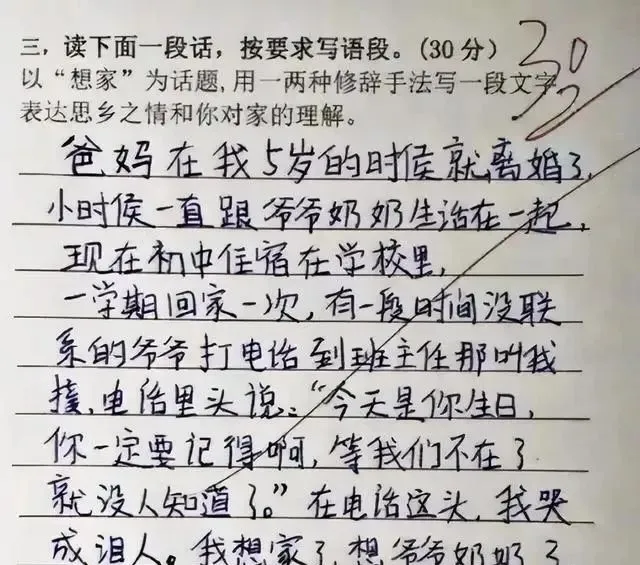 三，读下面一段话，按要求写语段。(30分)
以“想家”为话题，用一两种修辞手法写一段文字
表达思乡之情和你对家的理解。
30
爸妈在我5岁的时侯就离婚了，
小时侯一直跟爷爷奶奶生活在一起，
现在初中住宿在学校里，
一学期回家一次，有一段时间没联
系的爷爷打电话到班主任那叫我
接，电话里头说：“今天是你生日，
你一定要记得啊，等我们不在了
就没人知道了。”在电话这头，我哭
成泪人。我想家了，想爷爷奶奶了